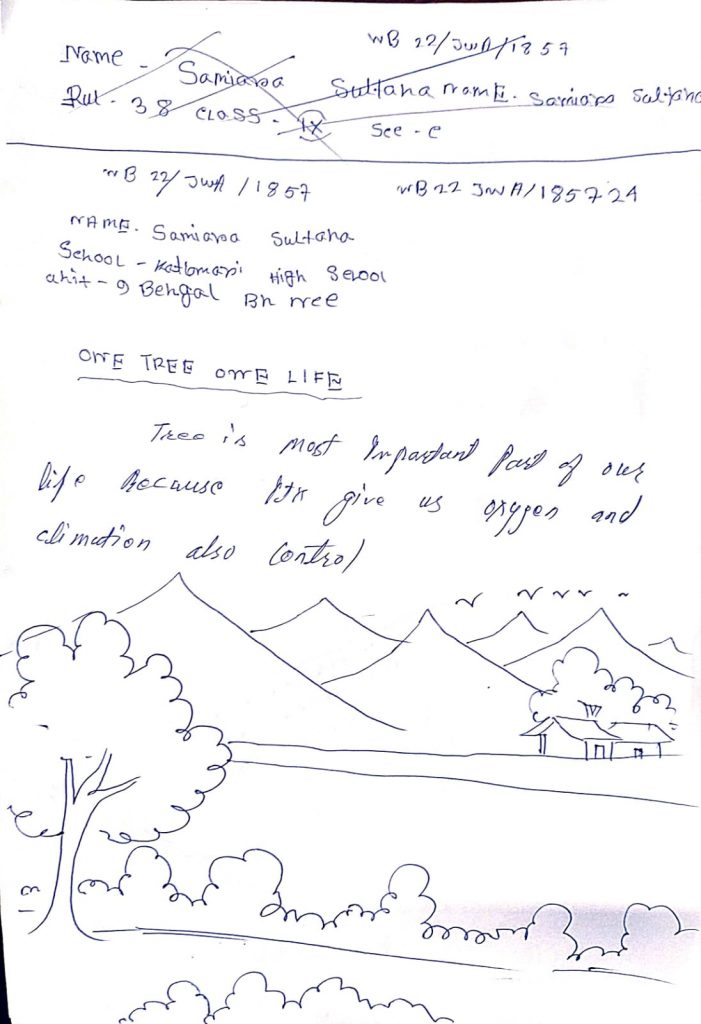 WB 22/JWA/1857
Name - Samiava Sultana NamE. Samiava Sultana
Rul. 38 CLASS - IX See - e
WB 22/JWA/1857 WB22 JWA/1857 24
NAME. Samiava Sultana
School - Katlamari High School
unit - 9 Bengal Bn
ONE TREE ONE LIFE
Tree is most Important Part of our
life Because Itx give us oxygen and
climation also control